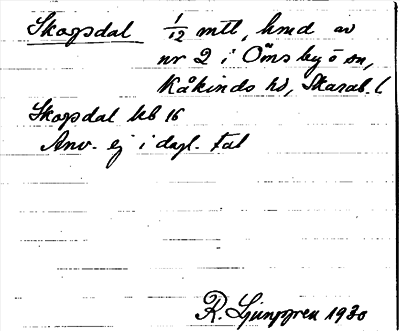 Skogsdal 1/12 mtl, hmd av
nr 2 i Ömsbyö sn,
Kåkinds hd, Skarab. l
Skogsdal kb 16
Anv. ej i dagl. tal
R. Ljunggren 1930